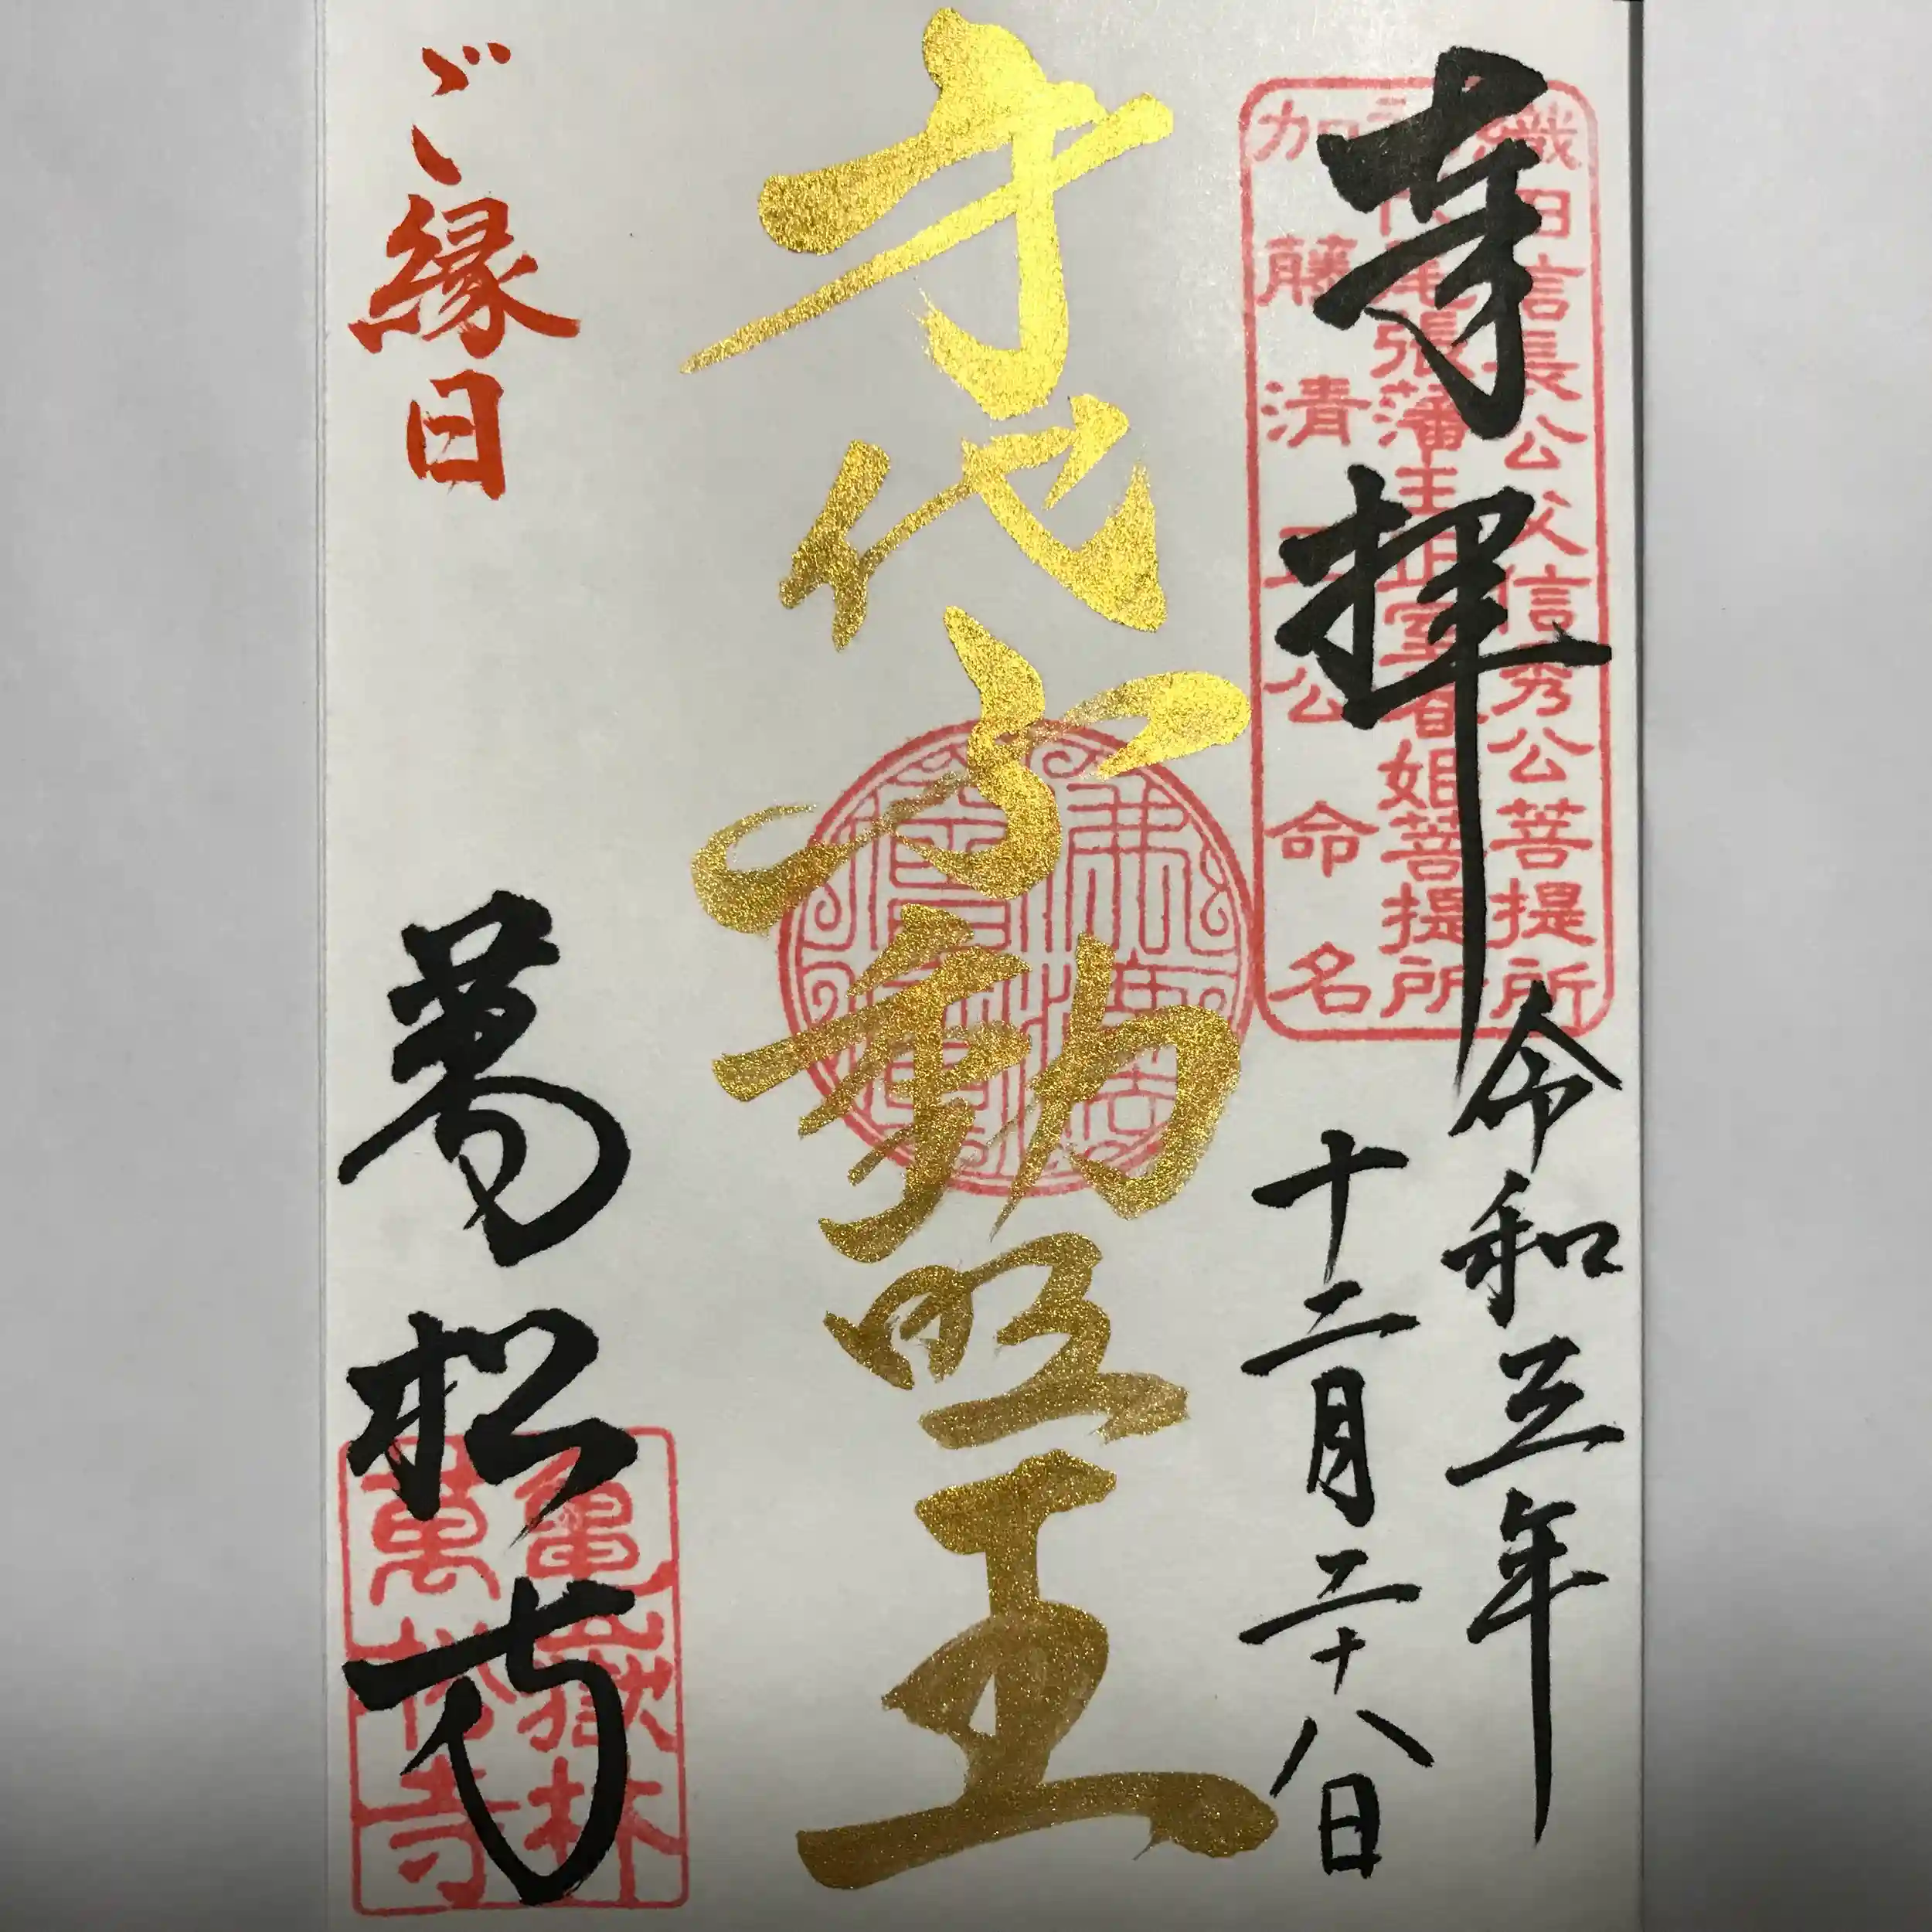 奉拝
織田信長公父信秀公菩提所
初代尾張藩主正室春姫菩提所
加藤清正公命名
令和五年
十二月二十八日
身代不動明王
ご縁日
萬松寺
亀嶽林
萬松寺